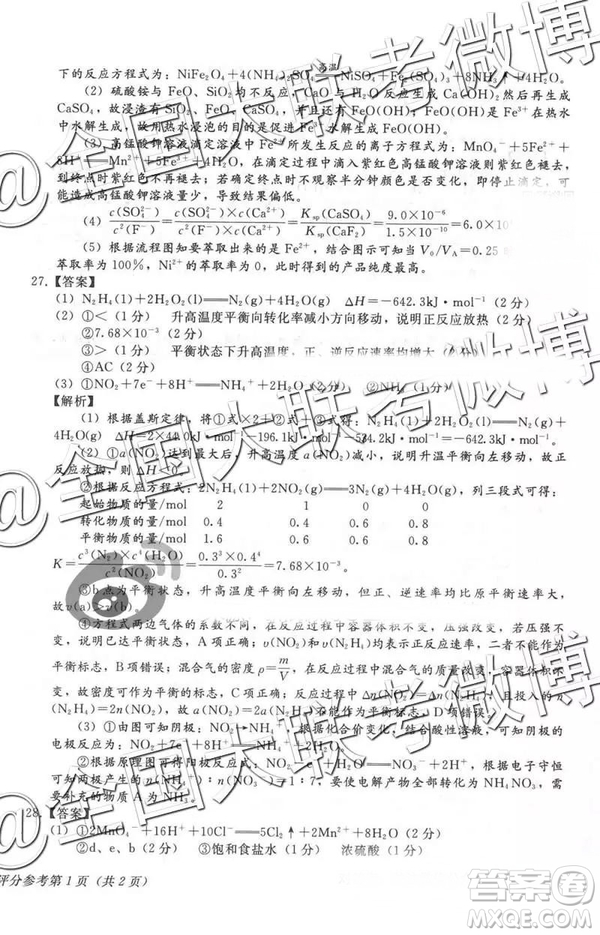 下的反应方式为：NiFe₂O₄+4(NH₄)₂S 高温 NiSO₄+Fe₂(SO₄)₃+8NH₃↑+4H₂O。
(2) 硫酸铵与 FeO、SiO₂ 均不反应，CaO 与 H₂O 反应生成 Ca(OH)₂ 然后再生成
CaSO₄，故浸渣有 SiO₂、FeO、CaSO₄，并且还有 FeO(OH)；FeO(OH) 是 Fe³⁺ 在热水
中水解生成，故用热水浸泡的目的是促进 Fe³⁺ 水解生成 FeO(OH)。
(3) 高锰酸钾溶液滴定溶液中 Fe²⁺ 所发生的离子方程式为：MnO₄⁻+5Fe²⁺+
8H⁺ Mn²⁺+5Fe³⁺+4H₂O，在滴定过程中滴入紫红色高锰酸钾溶液则紫红色褪去，
到终点时紫红色不再褪去；若确定终点时不观察半分钟颜色是否变化，即停止滴定，可
能造成高锰酸钾溶液量少，导致结果偏低。
(4) c(SO₄²⁻)/c²(F⁻)=c(SO₄²⁻)×c(Ca²⁺)/c²(F⁻)×c(Ca²⁺)=Ksp(CaSO₄)/Ksp(CaF₂)=9.0×10⁻⁶/1.5×10⁻¹⁰=6.0×10
(5) 根据流程图知要萃取出来的是 Fe²⁺，结合图示可知当 V₀/V_A=0.25
萃取率为 100%，Ni²⁺ 的萃取率为 0，此时的产品纯度最高。
27.【答案】
(1) N₂H₄(l)+2H₂O₂(l)══N₂(g)+4H₂O(g) ΔH=-642.3kJ·mol⁻¹ (2 分)
(2) ①< (1 分) 升高温度平衡向转化率减小方向移动，说明正反应放热 (2 分)
②7.68×10⁻³ (2 分)
③> (1 分) 平衡状态下升高温度，正、逆反应速率均增大 (2 分)
④AC (2 分)
(3) ①NO₂+7e⁻+8H⁺══NH₄⁺+2H₂O (2 分) ②NH₃ (1 分)
【解析】
(1) 根据盖斯定律，将①式×2+②式+③式得：N₂H₄(l)+2H₂O₂(l)══N₂(g)+
4H₂O(g) ΔH=2×44.0kJ·mol⁻¹-196.1kJ·mol⁻¹-534.2kJ·mol⁻¹=-642.3kJ·mol⁻¹。
(2) ①a 点达到最大后，升高温度，α(NO₂) 减小，说明升温平衡向左移动，故正
反应放热，故 ΔH<0。
②根据反应方程式：2N₂H₄(l)+2NO₂(g)══3N₂(g)+4H₂O(g)，列三段式可得：
起始物质的量/mol 2 1 0 0
转化物质的量/mol 0.4 0.4 0.6 0.8
平衡物质的量/mol 0.6 0.6 0.8
K=c³(N₂)×c⁴(H₂O)/c²(NO₂)=0.3³×0.4⁴/0.3²=7.68×10⁻³。
③b 点为平衡状态，升高温度平衡向左移动，但正、逆速率均比原平衡速率大，
故 υ(a)>υ(b)。
④方程式两边气体的系数不同，在反应过程中容器体积不变，压强改变，若压强不
变，说明已达平衡状态，A 项正确；υ(NO₂) 和 υ(H₂O) 均表示正反应速率，不能作为
平衡标志，B 项错误；混合气的密度 ρ=m/V，在反应过程中混合气质量改变，容器体积不
变，故密度不变可作为平衡的标志，C 项正确；Δn(NO₂)=Δn(N₂H₄)；且投入的
n(N₂H₄)=2n(NO₂)，故 Δn(N₂H₄)/Δn(NO₂) 不能作为平衡标志，D 项错误。
(3) ①由图可知阴极：NO₂→NH₄⁺，根据化合价变化、结合得失电子守恒，阴极
的电极反应为：NO₂+7e⁻+8H⁺══NH₄⁺+2H₂O。
②根据原理图可得阳极反应式为：NO₂-e⁻+H₂O══NO₃⁻+2H⁺，根据电子守恒
可知生成的 n(NH₄⁺)∶n(NO₃⁻)=1∶7，要使电解产物全部转化为 NH₄NO₃，需
要补充的物质 A 为 NH₃。
28.【答案】
(1) ①2MnO₄⁻+16H⁺+10Cl⁻══5Cl₂↑+2Mn²⁺+8H₂O (2 分)
②d、e、b (2 分) ③饱和食盐水 浓硫酸 (1 分)
评分参考第 1 页（共 2 页）
@全国大联考微博
@全国大联考微博
@全国大联考微博
答案圈
MXQE.COM